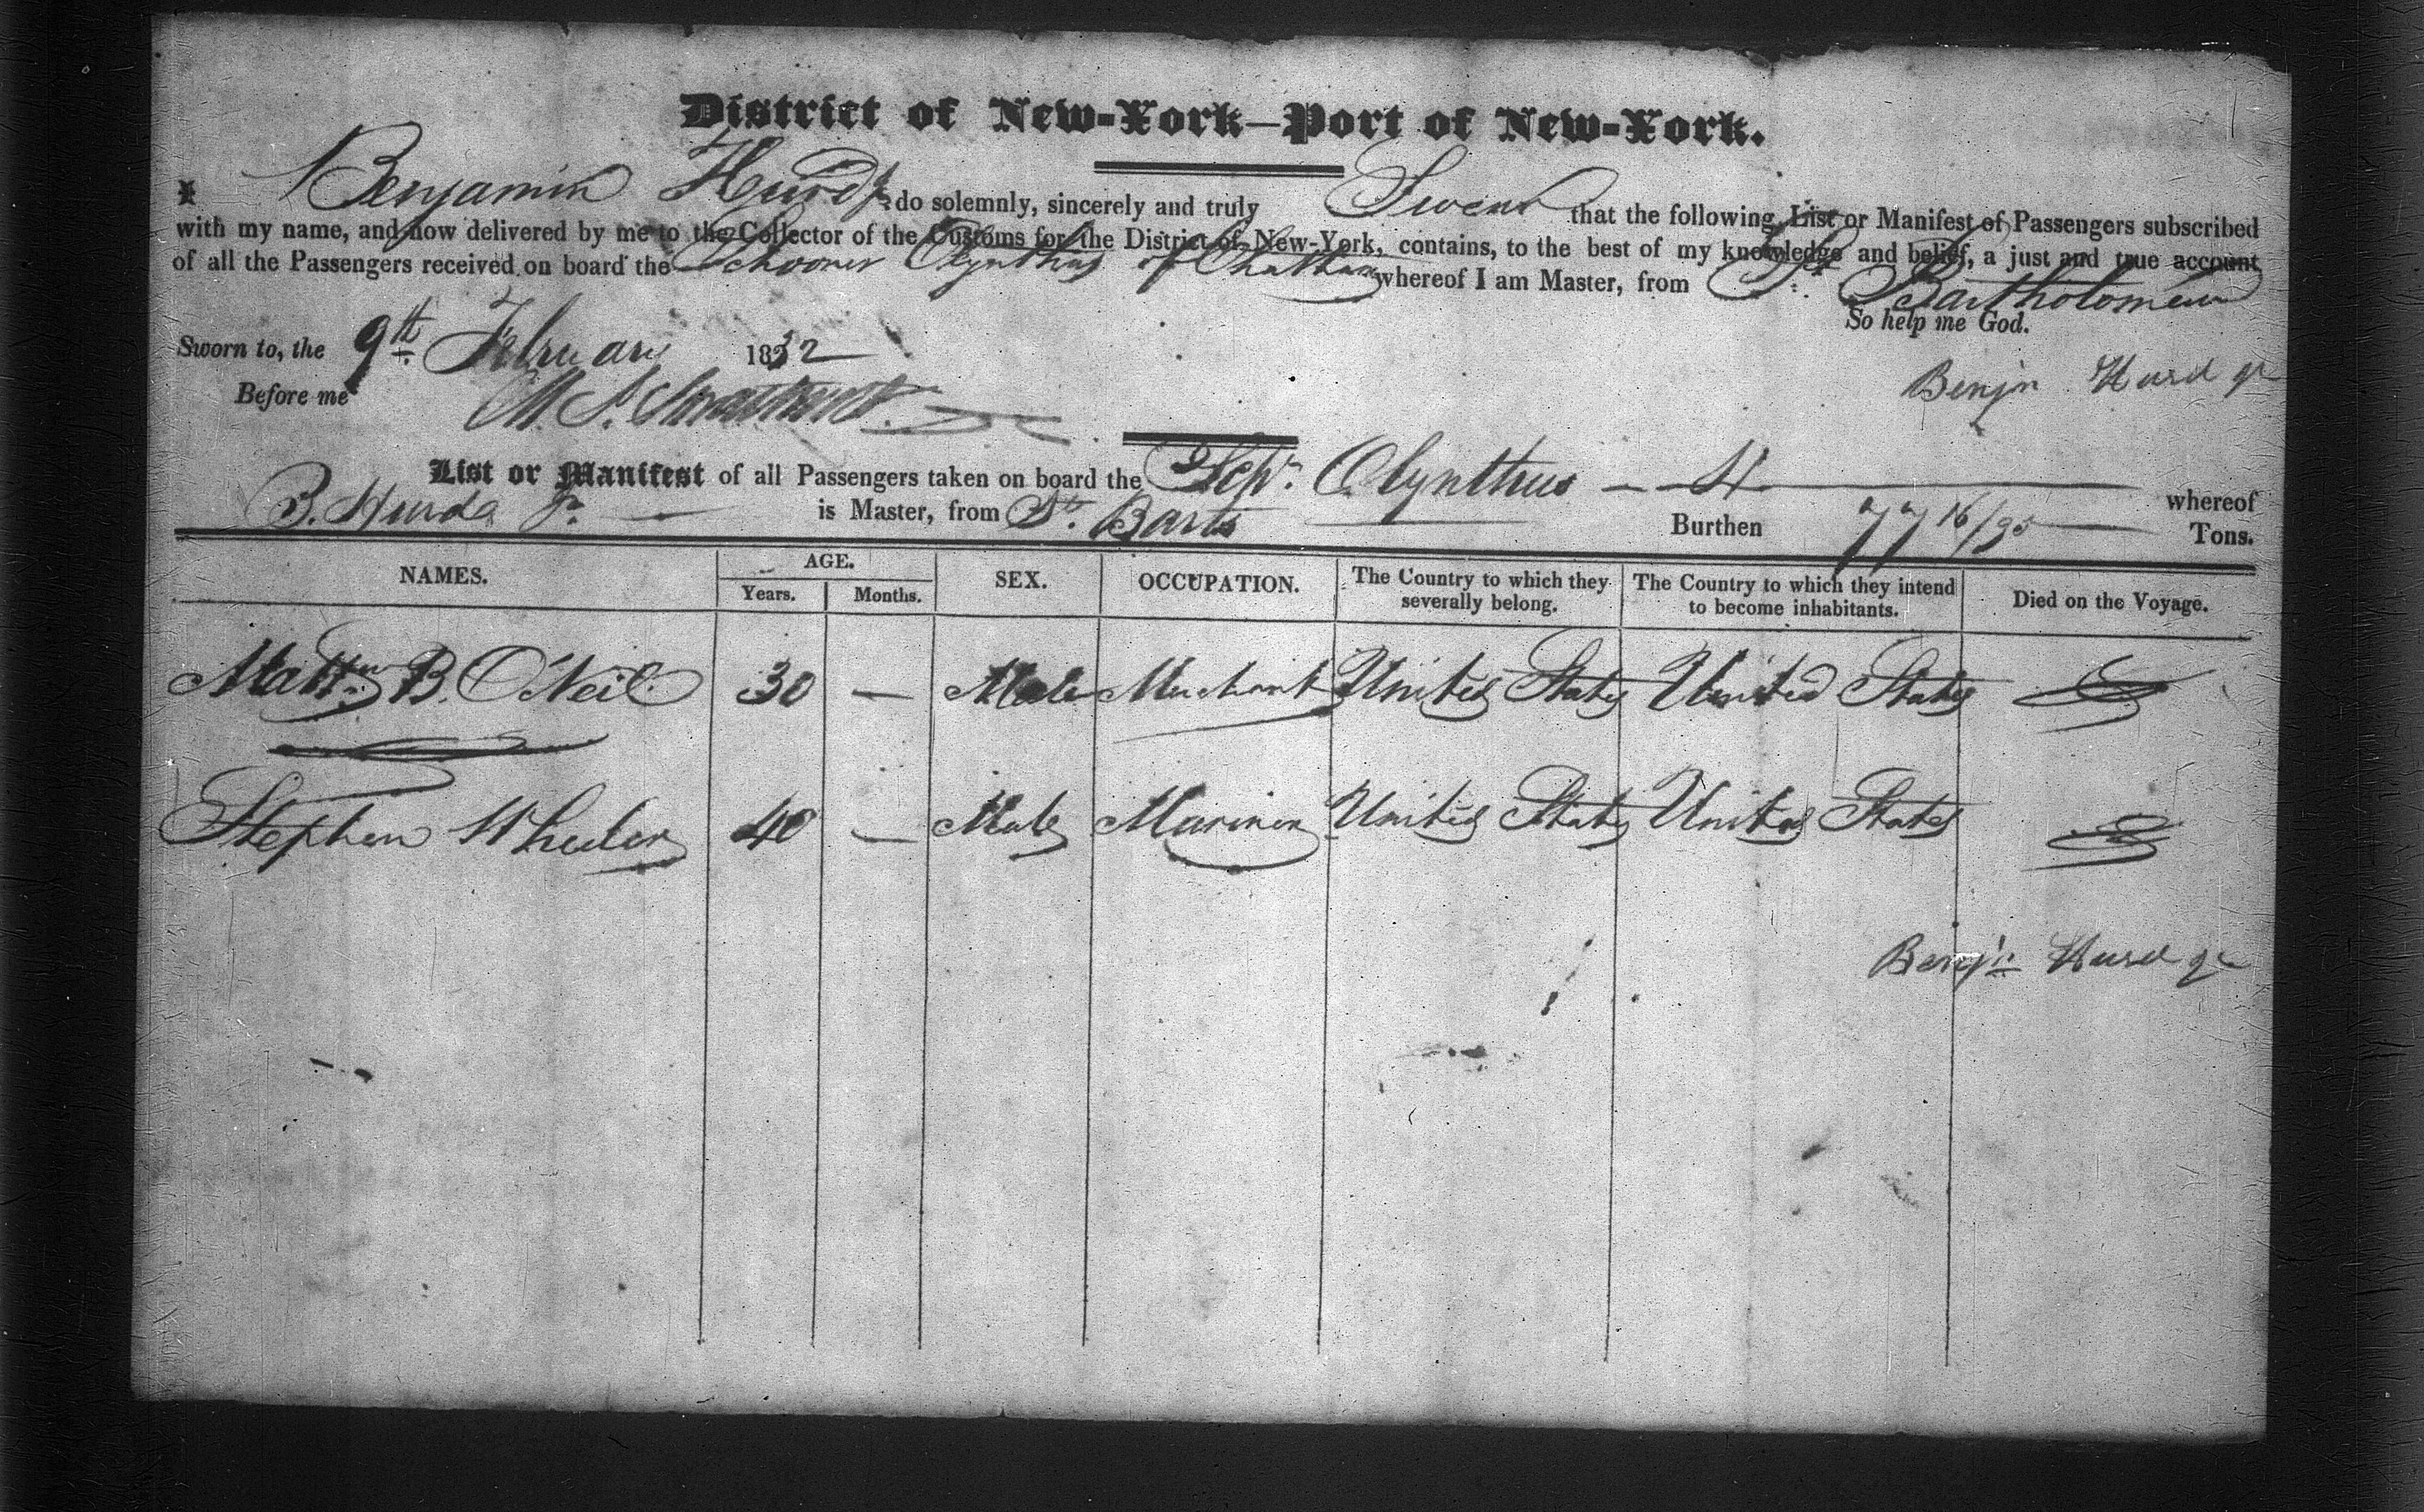 District of New-York—Port of New-York.
I Benjamin Hurd Jr. do solemnly, sincerely and truly Swear that the following List or Manifest of Passengers subscribed
with my name, and now delivered by me to the Collector of the Customs for the District of New-York, contains, to the best of my knowledge and belief, a just and true account
of all the Passengers received on board the Schooner Olynthus of Chatham whereof I am Master, from St. Bartholomew
So help me God.
Sworn to, the 9th February 1832
Before me
Benjn Hurd Jr
List or Manifest of all Passengers taken on board the Schr. Olynthus
whereof
B. Hurd Jr. is Master, from St. Barts Burthen 77 16/95 Tons.
NAMES. AGE. SEX. OCCUPATION. The Country to which they severally belong. The Country to which they intend to become inhabitants. Died on the Voyage.
Years. Months.
Mattw B. O'Neil 30 — Male Merchant United States United States
Stephen Wheeler 40 — Male Mariner United States United States
Benjn Hurd Jr